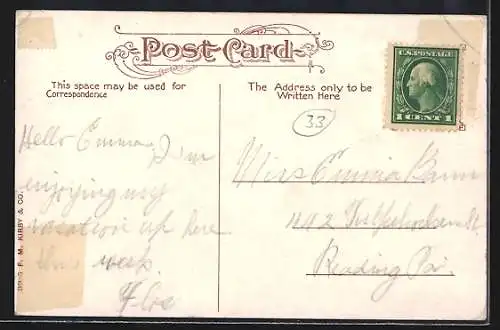 Post Card
This space may be used for
Correspondence
The Address only to be
Written Here
U.S. POSTAGE
1 CENT 1
33
Hello Emma, I'm
enjoying my
vacation up here
this week.
Miss Emma
Reading Pa.
F. M. KIRBY & CO.